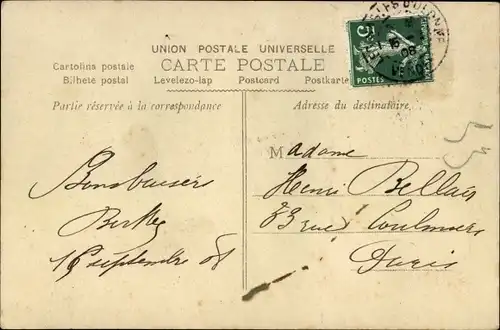 UNION POSTALE UNIVERSELLE
CARTE POSTALE
Cartolina postale
Bilhete postal Levelezo-lap Postcard Postkarte
Partie réservée à la correspondance
Adresse du destinataire.
5c
POSTES
16
08
Madame
Henri
rue Coulmiers
Paris
Bons baisers
16 septembre 08